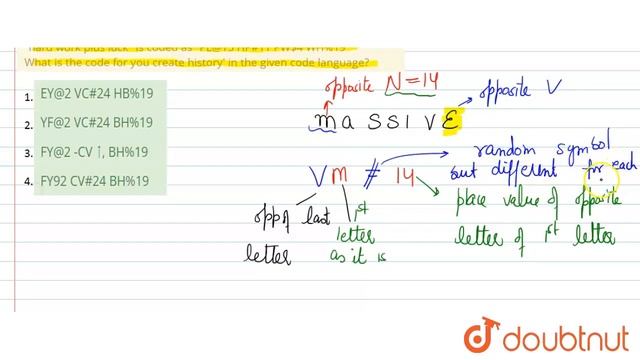 hard work plus luck' is coded as
What is the code for you create history' in the given code language?
1. EY@2 VC#24 HB%19
2. YF@2 VC#24 BH%19
3. FY@2 -CV ↑, BH%19
4. FY92 CV#24 BH%19
opposite N=14
opposite V
m a S S I V E
V m # 14
random symbol
but different for each
opp of last
letter
1st
letter
as it is
place value of opposite
letter of 1st letter
doubtnut